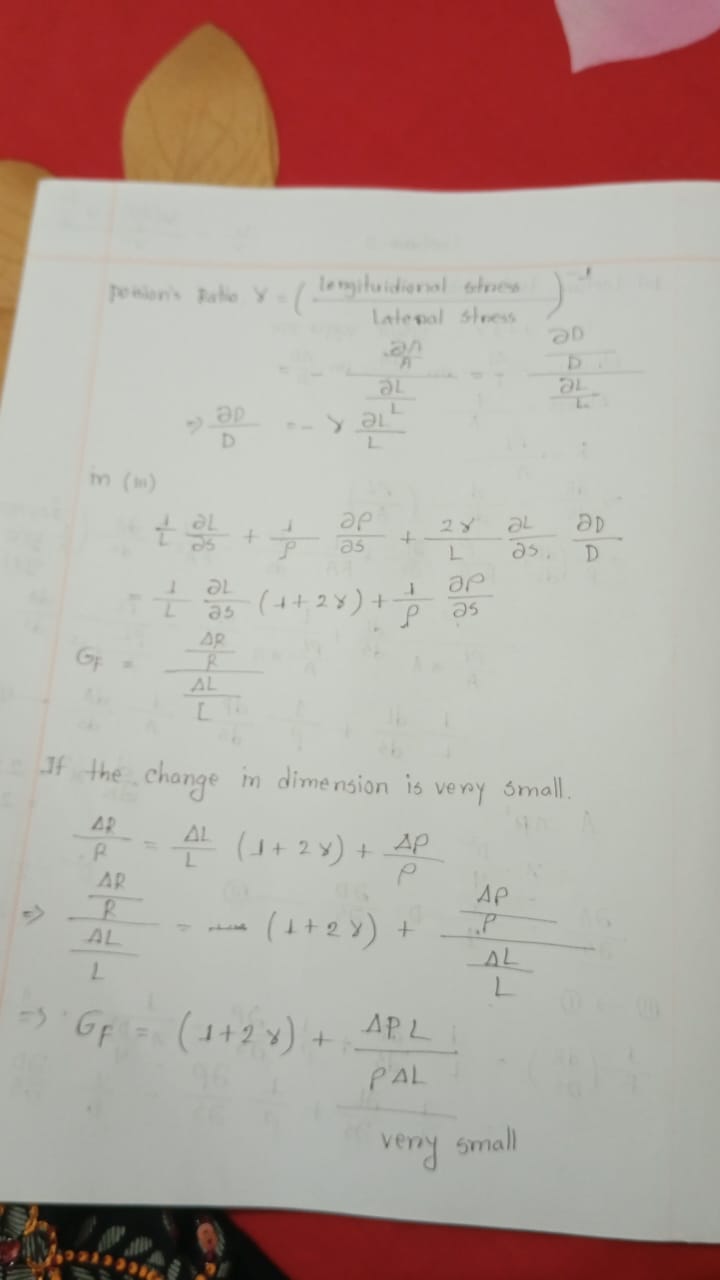 Poission's Ratio γ = ( longituidional stress / Lateral stress )⁻¹
= - (∂A/A) / (∂L/L) = - (∂D/D) / (∂L/L)
⇒ ∂D/D = - γ ∂L/L
in (iii)
1/L ∂L/∂s + 1/ρ ∂ρ/∂s + 2γ/L ∂L/∂s. ∂D/D
= 1/L ∂L/∂s (1+2γ) + 1/ρ ∂ρ/∂s
G_F = (ΔR/R) / (ΔL/L)
If the change in dimension is very small.
ΔR/R = ΔL/L (1+2γ) + Δρ/ρ
⇒ (ΔR/R) / (ΔL/L) = (1+2γ) + (Δρ/ρ) / (ΔL/L)
⇒ G_F = (1+2γ) + Δρ.L / ρΔL
very small